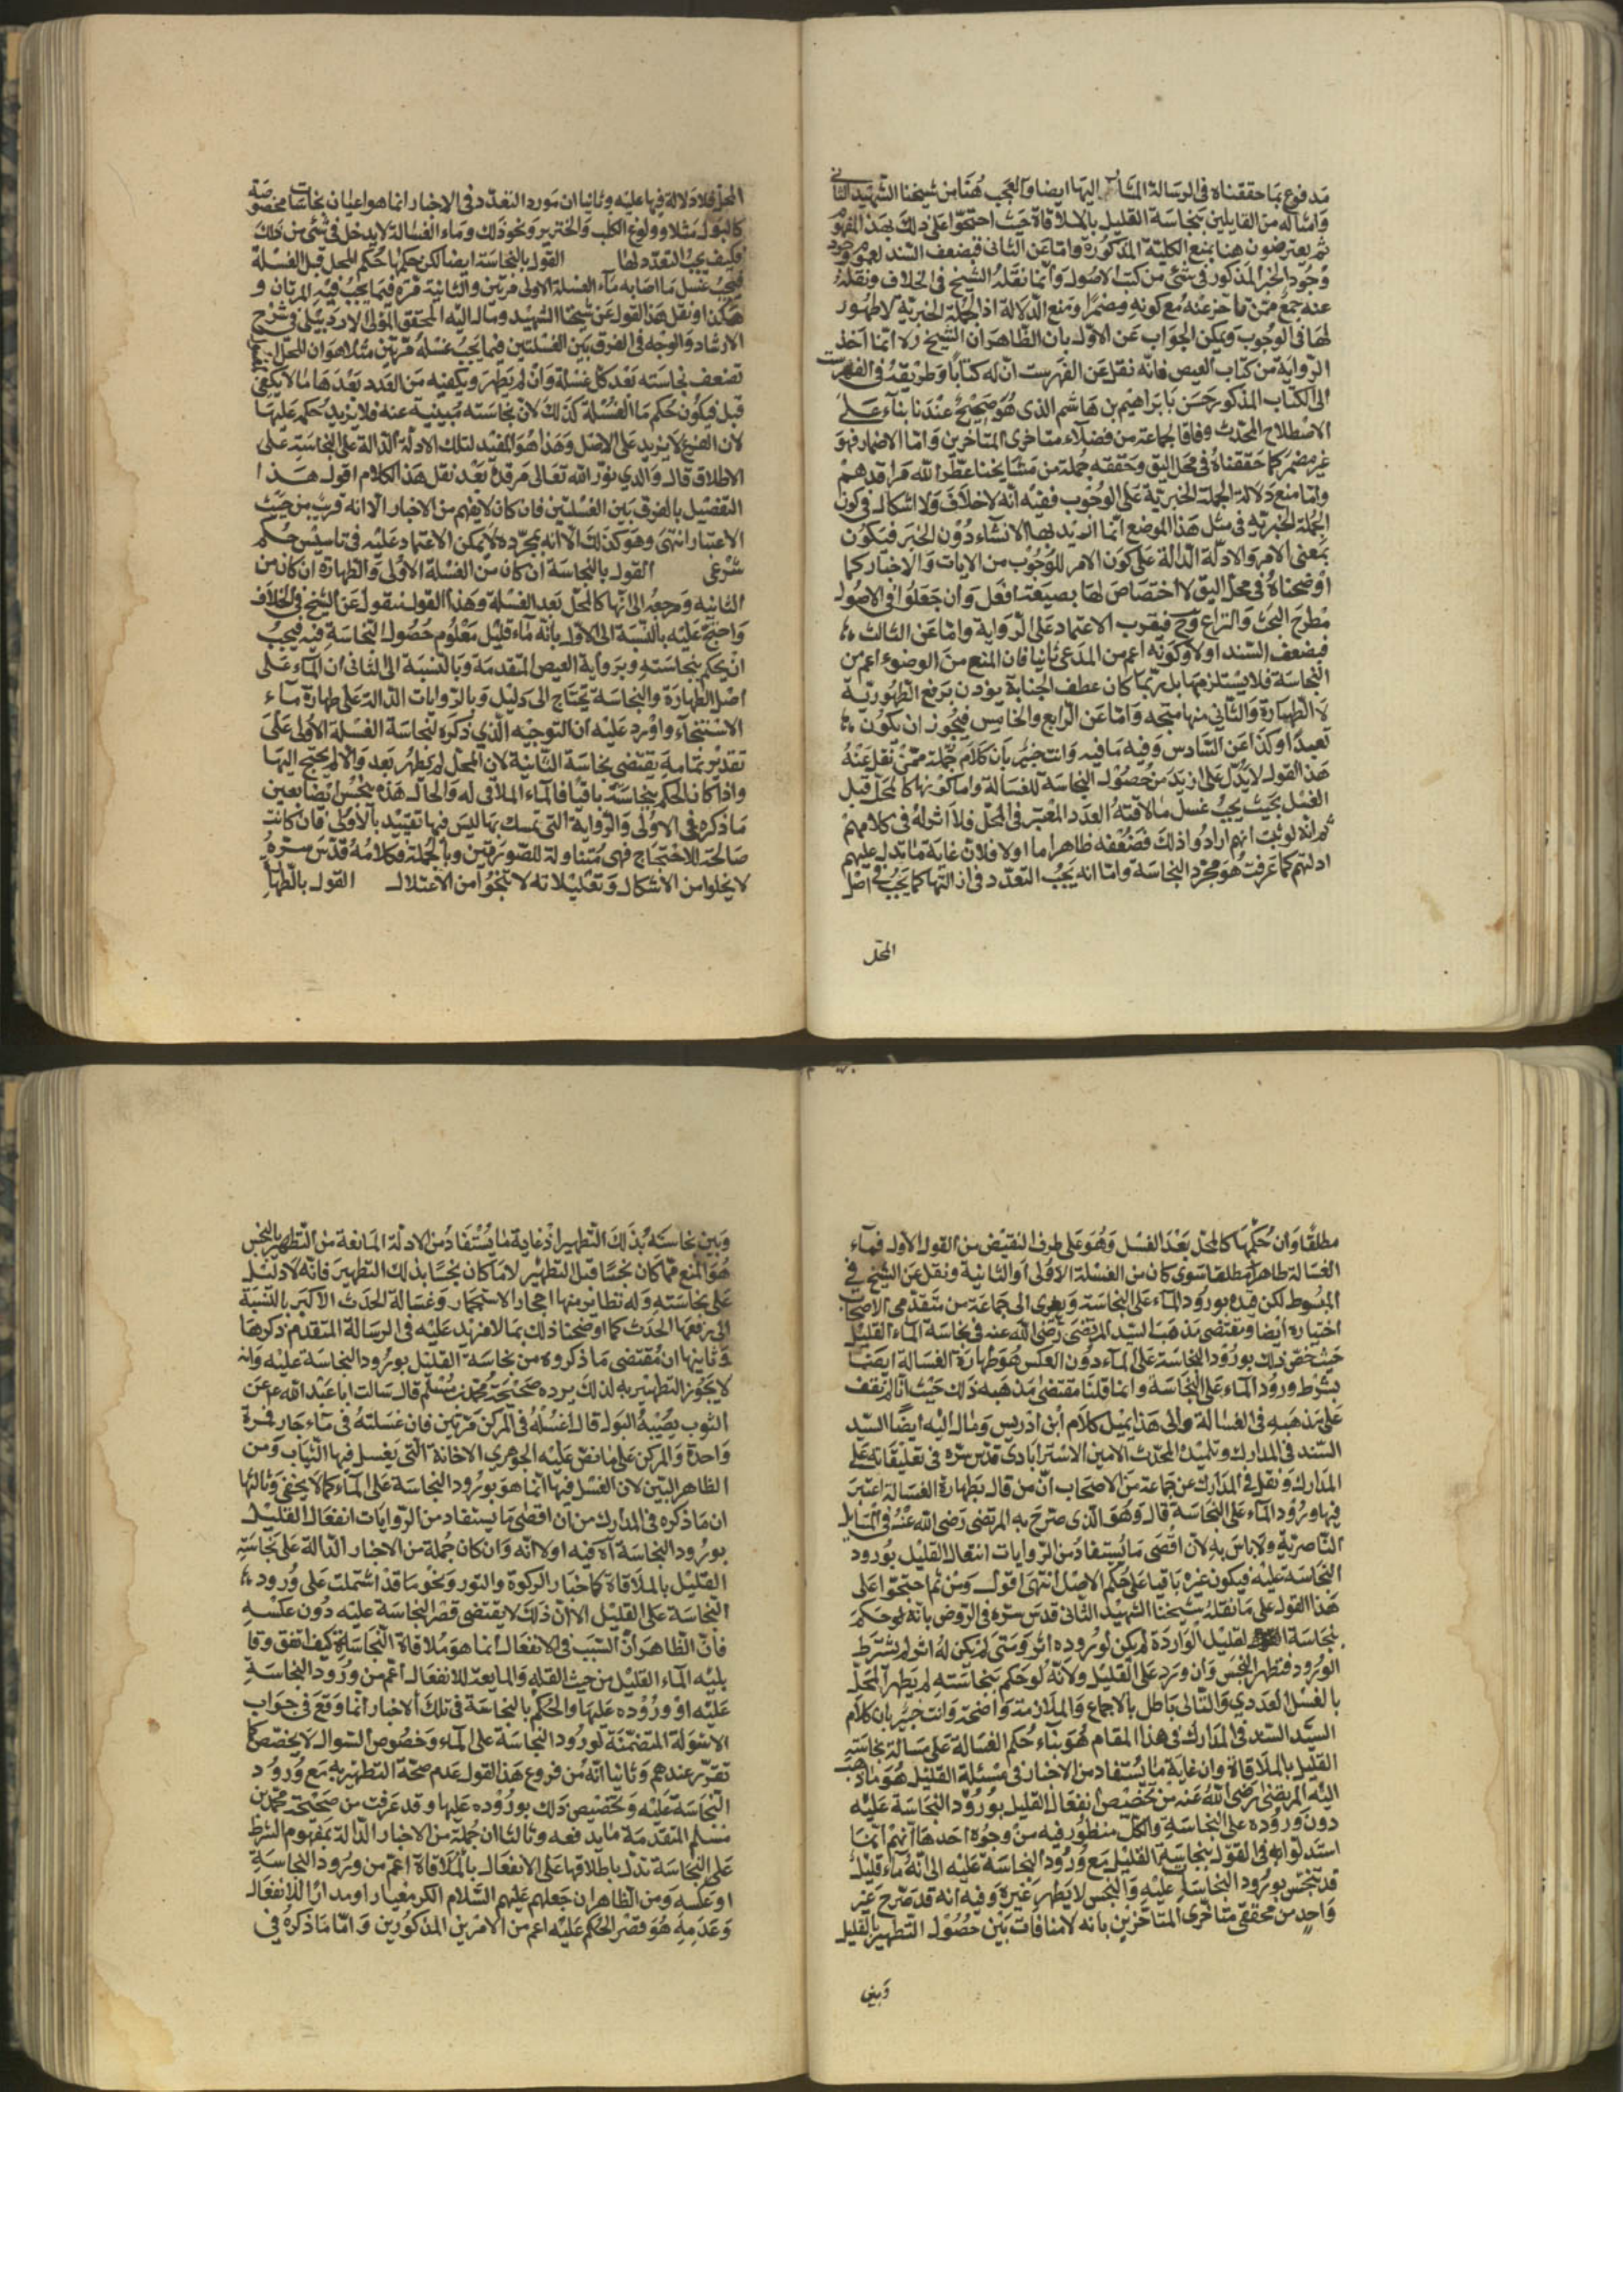 مدفوع بما حققناه في الرسالة المشار اليها ايضا والعجب هنا من شيخنا الشهيد الثاني
وامثاله من القايلين بنجاسة القليل بالملاقاة حيث احتجوا على ذلك بهذا المفهوم
ثم يعترضون هنا بمنع الكلية المذكورة واما عن الثاني فبضعف السند لعدم وجود
وجود الخبر المذكور في شئ من كتب الاصول وانما نقله الشيخ في الخلاف ونقله
عنه جمع ممن تاخر عنه مع كونه مضمرا ومنع الدلالة اذ الجملة الخبرية لا ظهور
لها في الوجوب ويمكن الجواب عن الاول بان الظاهر ان الشيخ ره انما اخذ
الرواية من كتاب العيص فانه نقل عن الفهرست ان له كتابا وطريقه في الفهرست
الى الكتاب المذكور حسن بابراهيم بن هاشم الذي هو صحيح عندنا بناء على
الاصطلاح المحدث وفاقا لجماعة من فضلاء متاخري المتاخرين واما الاضمار فهو
غير مضر كما حققناه في محل اليق وحققه جملة من مشايخنا عطر الله مراقدهم
واما منع دلالة الجملة الخبرية على الوجوب ففيه انه لا خلاف ولا اشكال في كون
الجملة الخبرية في مثل هذا الموضع انما اريد بها الانشاء دون الخبر فيكون
بمعنى الامر والادلة الدالة على كون الامر للوجوب من الايات والاخبار كما
اوضحناه في محل اليق لا اختصاص لها بصيغة افعل وان جعلوا في الاصول
مطرح البحث والنزاع وح فيقرب الاعتماد على الرواية واما عن الثالث
فبضعف السند اولا وكونه اعم من المدعى ثانيا فان المنع من الوضوء اعم من
النجاسة فلا يستلزمها بل ربما كان عطف الجنابة يؤذن برفع الطهورية
لا الطهارة والثاني منها متجه واما عن الرابع والخامس فيجوز ان يكون
تعبدا وكذا عن السادس وفيه ما فيه وانت خبير بان كلام جملة ممن نقل عنه
هذا القول لا يدل على ازيد من حصول النجاسة للغسالة واما كونها كالمحل قبل
الغسل بحيث يجب غسل ما لاقته العدد المعتبر في المحل فلا اثر له في كلامهم
ثم انه لو ثبت انهم ارادوا ذلك فضعفه ظاهر اما اولا فلان غاية ما تدل عليه
ادلتهم كما عرفت هو مجرد النجاسة واما انه يجب التعدد في ازالتها كما يجب في اصل
المحل
المحل فلا دلالة فيها عليه وثانيا ان مورد التعدد في الاخبار انما هو اعيان نجاسات مخصوصة
كالبول مثلا وولوغ الكلب والخنزير ونحو ذلك وماء الغسالة لا يدخل في شئ من ذلك
فكيف يجب التعدد لها القول بالنجاسة ايضا لكن حكمها حكم المحل قبل الغسلة
فيجب غسل ما اصابه ماء الغسلة الاولى مرتين والثانية مرة فيما يجب فيه المرتان و
هكذا ونقل هذا القول عن شيخنا الشهيد ومال اليه المحقق المولى الاردبيلي في شرح
الارشاد والوجه في الفرق بين الغسلتين فيما يجب غسله مرتين مثلا هو ان المحل
تضعف نجاسته بعد كل غسلة وان لم يطهر ويكفيه من العدد بعدها ما لا يكفي
قبل فيكون حكم ماء الغسلة كذلك لان نجاسته مسببية عنه فلا يزيد حكمه عليها
لان الفرع لا يزيد على الاصل وهذا هو المقيد لتلك الادلة الدالة على النجاسة على
الاطلاق قال والدي نور الله تعالى مرقده بعد نقل هذا الكلام اقول هذا
التفصيل بالفرق بين الغسلتين فان كان لا يفهم من الاخبار الا انه قريب من حيث
الاعتبار انتهى وهو كذلك الا انه بمجرده لا يمكن الاعتماد عليه في تاسيس حكم
شرعي القول بالنجاسة ان كان من الغسلة الاولى والطهارة ان كان من
الثانيه ومرجعه الى انها كالمحل بعد الغسلة وهذا القول منقول عن الشيخ في الخلاف
واحتج عليه بالنسبة الى الاول بانه ماء قليل معلوم حصول النجاسة فيه فيجب
ان يحكم بنجاسته وبرواية العيص المتقدمة وبالنسبة الى الثاني ان الماء على
اصل الطهارة والنجاسة تحتاج الى دليل وبالروايات الدالة على طهارة ماء
الاستنجاء واورد عليه ان التوجيه الذي ذكره لنجاسة الغسلة الاولى على
تقدير تمامه يقتضي نجاسة الثانية لان المحل لم يطهر بعد والا لم يحتج اليها
واذا كان الحكم بنجاسته باقيا فالماء الملاقي له والحال هذه ينجس ايضا بعين
ما ذكره في الاولى والرواية التي تمسك بها ليس فيها تقييد بالاولى فان كانت
صالحة للاحتجاج فهي متناولة للصورتين وبالجملة فكلامه قدس سره
لا يخلو من الاشكال وتعليلاته لا تنجو من الاعتلال القول بالطهارة
مطلقا وان حكمها كالمحل بعد الغسل وهو على طرف النقيض من القول الاول فماء
الغسالة طاهر مطلقا سوى كان من الغسلة الاولى او الثانية ونقل عن الشيخ في
المبسوط لكن قيده بورود الماء على النجاسة ويعزى الى جماعة من متقدمي الاصحاب
اختياره ايضا ويقتضي مذهب السيد المرتضى رضي الله عنه في نجاسة الماء القليل
حيث خص ذلك بورود النجاسة على الماء دون العكس هو طهارة الغسالة ايضا
بشرط ورود الماء على النجاسة وانما قلنا مقتضى مذهبه ذلك حيث انا لم نقف
على مذهبه في الغسالة والى هذا يميل كلام ابن ادريس ومال اليه ايضا السيد
السند في المدارك وتلميذه المحدث الامين الاسترابادي قدس سره في تعليقاته على
المدارك ونقل في المدارك عن جماعة من الاصحاب ان من قال بطهارة الغسالة اعتبر
فيها ورود الماء على النجاسة قال وهو الذي صرح به المرتضى رضي الله عنه في المسايل
الناصرية ولا باس به لان اقصى ما يستفاد من الروايات انفعال القليل بورود
النجاسة عليه فيكون غيره باقيا على حكم الاصل انتهى اقول ومن ثم احتجوا على
هذا القول على ما نقله شيخنا الشهيد الثاني قدس سره في الروض بانه لو حكم
بنجاسة القليل الواردة لم يكن لوروده اثر ومتى لم يكن له اثر لم يشترط
الورود فتطهر النجس وان ورد على القليل ولانه لو حكم بنجاسته لم يطهر المحل
بالغسل العددي والتالي باطل بالاجماع والملازمة واضحة وانت خبير بان كلام
السيد السند في المدارك في هذا المقام هو بناء حكم الغسالة على مسالة نجاسة
القليل بالملاقاة وان غاية ما يستفاد من الاخبار في مسئلة القليل هو ما ذهب
اليه المرتضى رضي الله عنه من تخصيص انفعال القليل بورود النجاسة عليه
دون وروده على النجاسة والكل منظور فيه من وجوه احدها انهم انما
استدلوا به في القول بنجاسة القليل مع ورود النجاسة عليه الى انه ماء قليل
قد تنجس بورود النجاسة عليه والنجس لا يطهر غيره وفيه انه قد صرح غير
واحد من محققي متاخري المتاخرين بانه لا منافات بين حصول التطهير بالقليل
وبين
وبين نجاسته بذلك التطهير اذ غاية ما يستفاد من الادلة المانعة من التطهير بالنجس
هو المنع مما كان نجسا قبل التطهير لا ما كان نجسا بذلك التطهير فانه لا دليل
على نجاسته وله نظاير منها احجار الاستجمار وغسالة الحدث الاكبر بالنسبة
الى رفعها الحدث كما اوضحنا ذلك بما لا مزيد عليه في الرسالة المتقدم ذكرها
وثانيها ان مقتضى ما ذكروه من نجاسة القليل بورود النجاسة عليه وانه
لا يجوز التطهير به لذلك يرده صحيحة محمد بن مسلم قال سالت ابا عبد الله ع عن
الثوب يصيبه البول قال اغسله في المركن مرتين فان غسلته في ماء جار فمرة
واحدة والمركن على ما نص عليه الجوهري الاجانة التي يغسل فيها الثياب ومن
الظاهر البين لان الغسل فيها انما هو بورود النجاسة على الماء كما لا يخفى وثالثها
ان ما ذكره في المدارك من ان اقصى ما يستفاد من الروايات انفعال القليل
بورود النجاسة آه فيه اولا انه وان كان جملة من الاخبار الدالة على نجاسة
القليل بالملاقاة كاخبار الركوة والتور ونحوهما قد اشتملت على ورود
النجاسة على القليل الا ان ذلك لا يقتضي قصر النجاسة عليه دون عكسه
فان الظاهر ان السبب في الانفعال انما هو ملاقاة النجاسة كيف اتفق وقا
بليه الماء القليل من حيث القله والمايعه للانفعال اعم من ورود النجاسة
عليه او وروده عليها والحكم بالنجاسة في تلك الاخبار انما وقع في جواب
الاسولة المتضمنة لورود النجاسة على الماء وخصوص السوال لا يخصص كما
تقرر عندهم وثانيا انه من فروع هذا القول عدم صحة التطهير به مع ورود
النجاسة عليه وتخصيص ذلك بوروده عليها وقد عرفت من صحيحة محمد بن
مسلم المتقدمة ما يدفعه وثالثا ان جملة من الاخبار الدالة بمفهوم الشرط
على النجاسة تدل باطلاقها على الانفعال بالملاقاة اعم من ورود النجاسة
او عكسه ومن الظاهر ان جعلهم عليهم السلام الكر معيارا ومدارا للانفعال
وعدمه هو قصر الحكم عليه اعم من الامرين المذكورين واما ما ذكره في